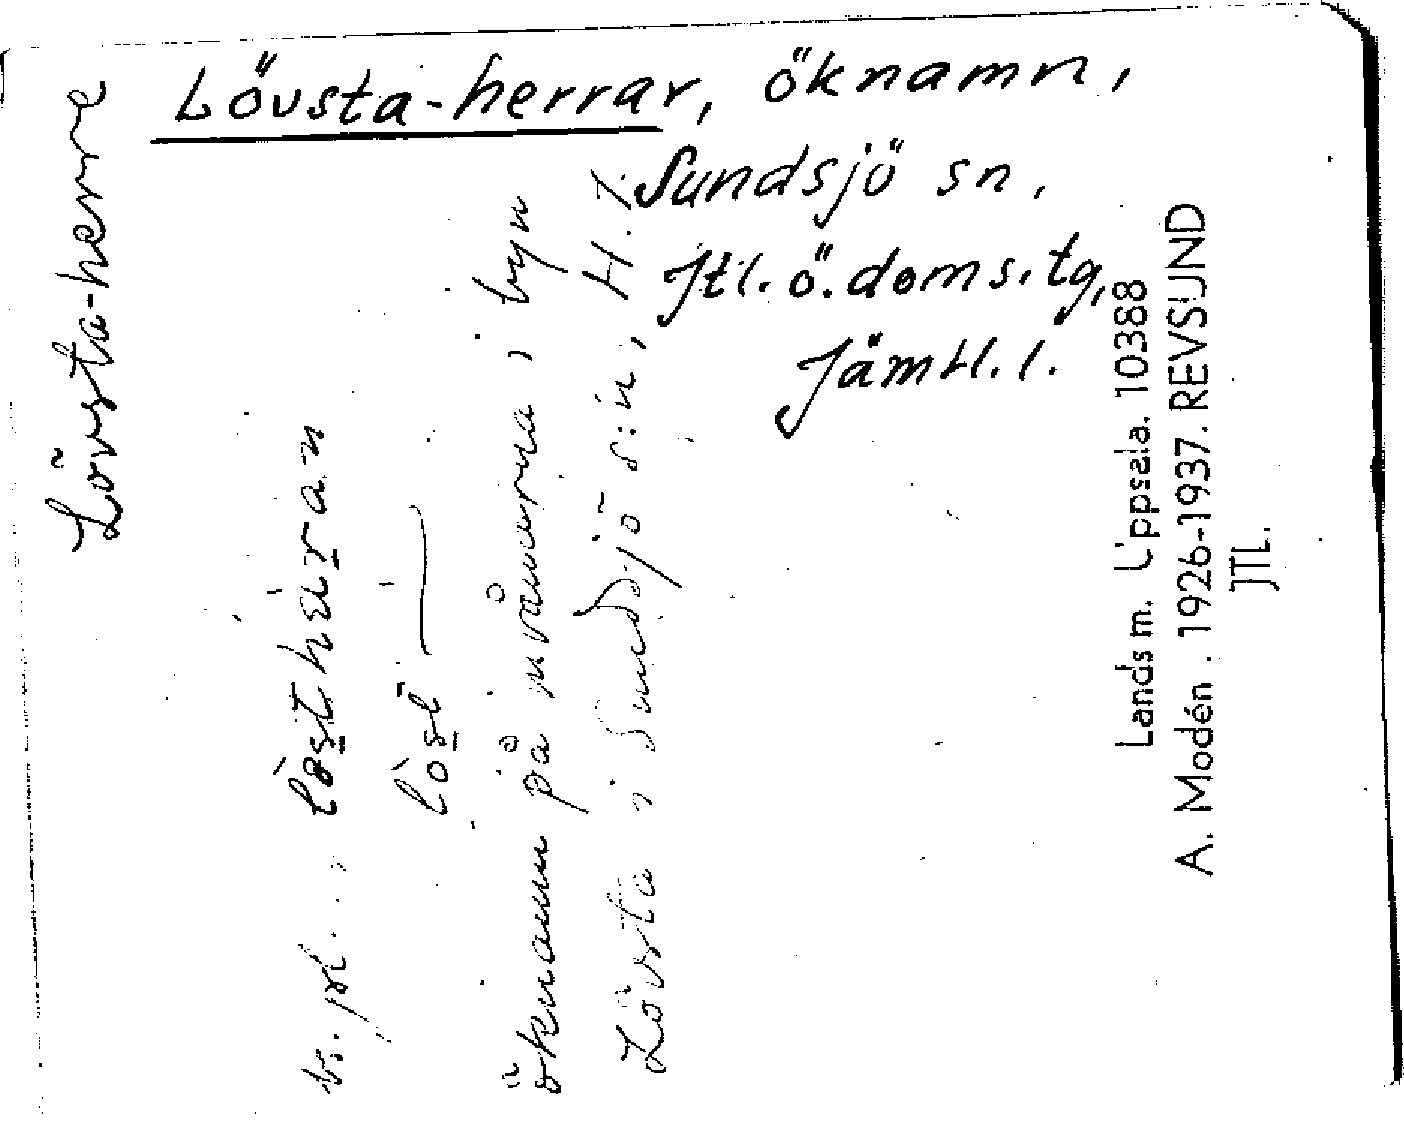 Lövsta-herrar, öknamn,
Sundsjö sn,
Jtl. ö. doms. tg,
Jämtl. l.
Lövsta-herre
b. pl. . . , lo̠stheran
löst
öknamn på invånarna i byn
Lövsta i Sundsjö s:n, H. 7.
Landsm. Uppsala. 10388
A. Modén. 1926-1937. REVSUND
JTL.